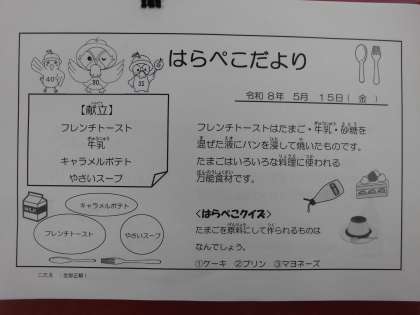 40
30
35
はらぺこだより
令和 8年 5月 15日( 金 )
【献立】
フレンチトースト
牛乳
キャラメルポテト
やさいスープ
フレンチトーストはたまご・牛乳・砂糖を
混ぜた液にパンを浸して焼いたものです。
たまごはいろいろな料理に使われる
万能食材です。
キャラメルポテト
フレンチトースト
やさいスープ
<はらぺこクイズ>
たまごを原料にして作られるものは
なんでしょう。
①ケーキ ②プリン ③マヨネーズ